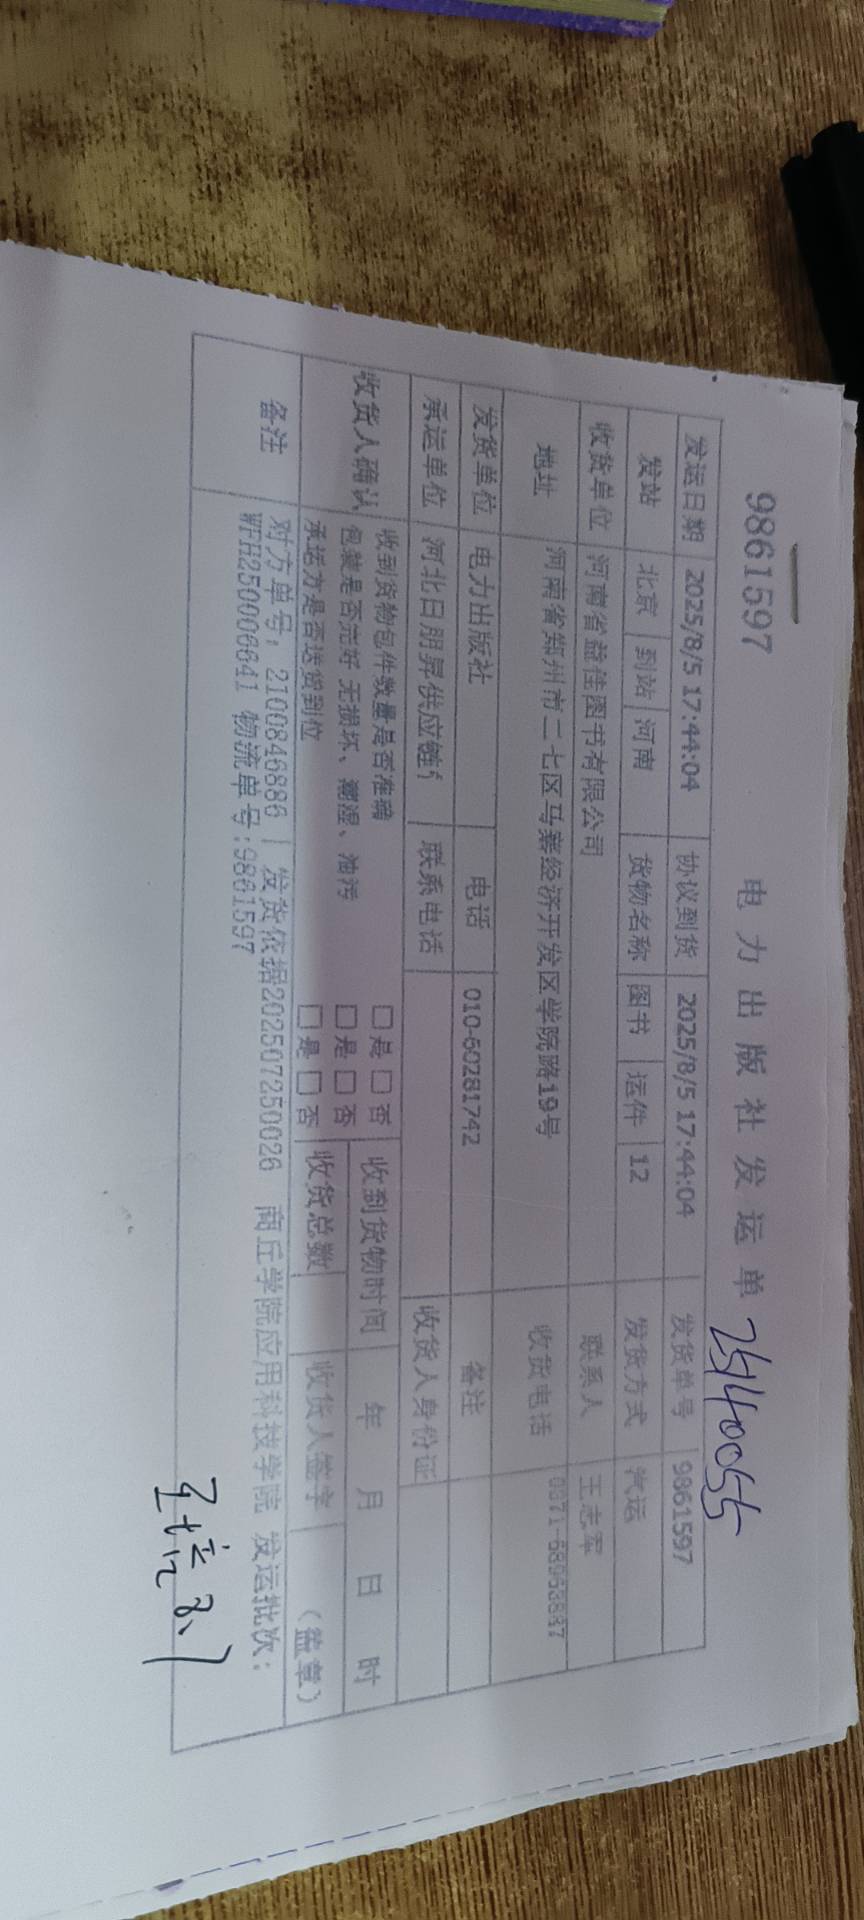 9861597
电力出版社发运单 25140055
发运日期 2025/8/5 17:44:04 协议到货 2025/8/5 17:44:04 发货单号 9861597
发站 北京 到站 河南 货物名称 图书 运件 12 发货方式 汽运
收货单位 河南省益佳图书有限公司 联系人 王志军
地址 河南省郑州市二七区马寨经济开发区学院路19号 收货电话 0371-68953887
发货单位 电力出版社 电话 010-60281742 备注
承运单位 河北日朋昇供应链 联系电话 收货人身份证
收货人确认 收到货物包件数量是否准确 □是 □否 收到货物时间 年 月 日 时
包装是否完好 无损坏、潮湿、油污 □是 □否
承运方是否送货到位 □是 □否 收货总数 收货人签字 （签章）
备注 对方单号：2100846886 | 发货依据202507250026 商丘学院应用科技学院 发运批次：
WFH250006641 物流单号:9861597